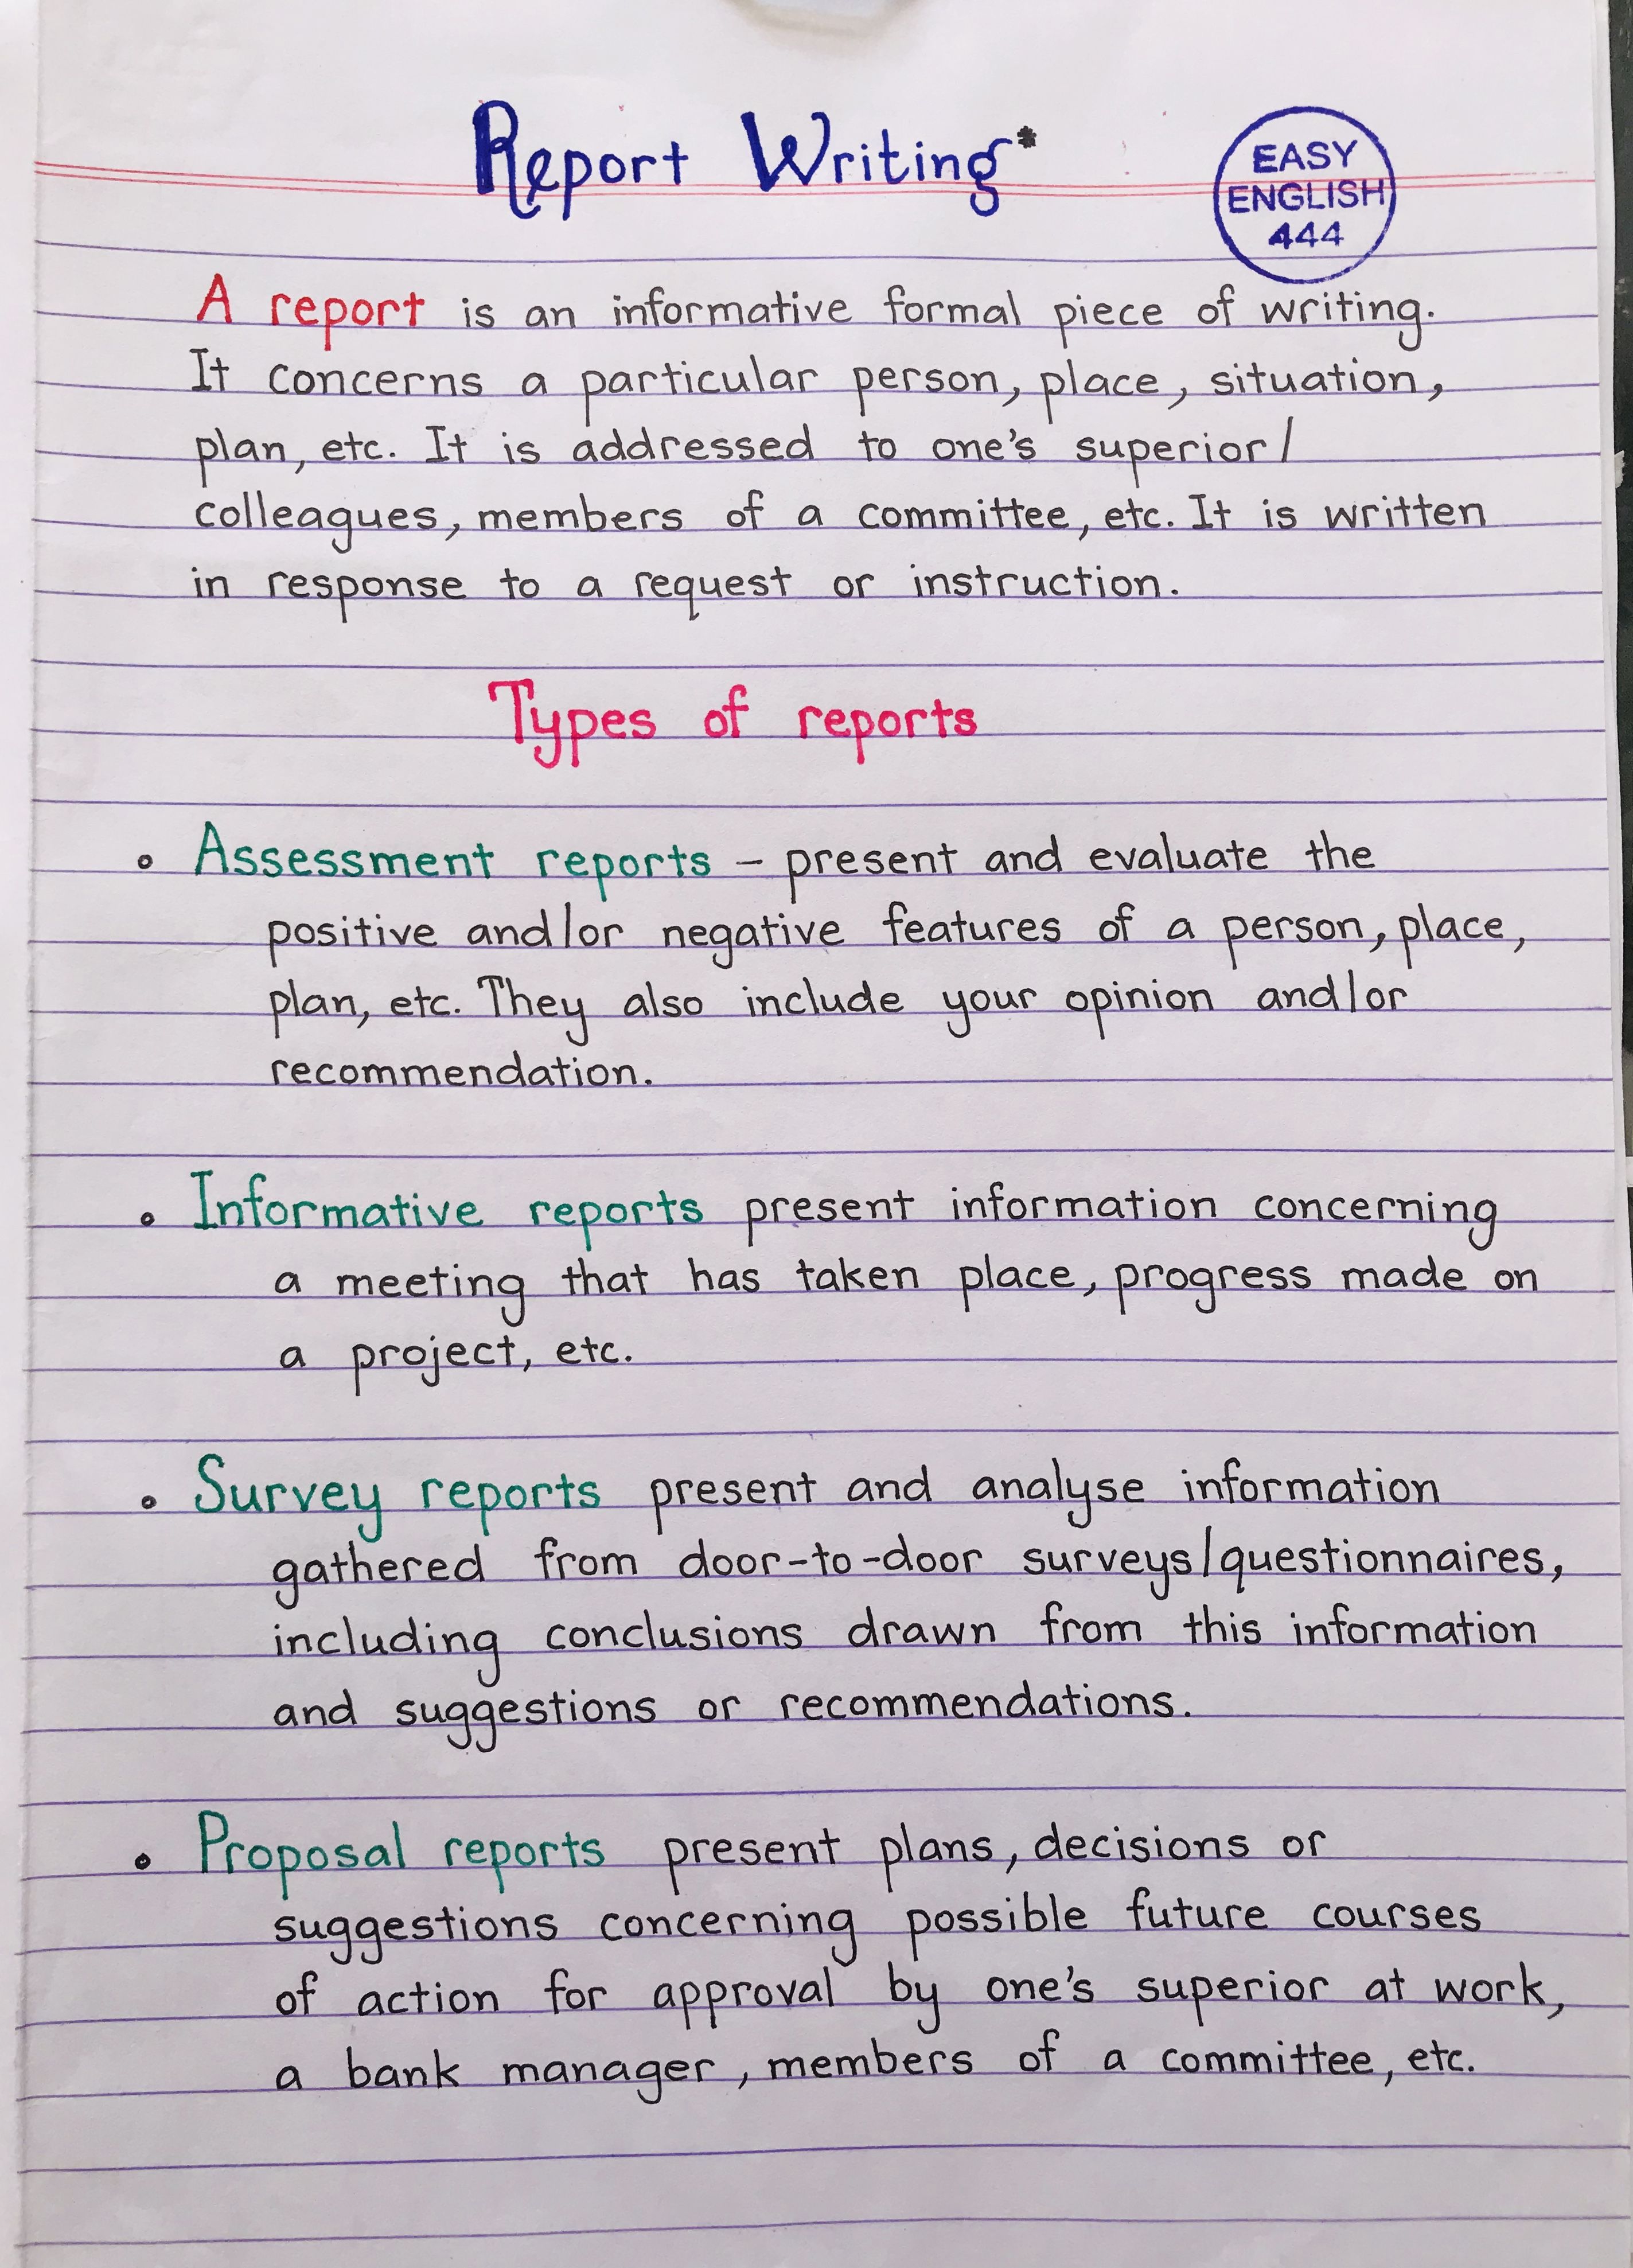 Report Writing*
EASY
ENGLISH
444
A report is an informative formal piece of writing.
It concerns a particular person, place, situation,
plan, etc. It is addressed to one's superior/
colleagues, members of a committee, etc. It is written
in response to a request or instruction.
Types of reports
• Assessment reports – present and evaluate the
positive and/or negative features of a person, place,
plan, etc. They also include your opinion and/or
recommendation.
• Informative reports present information concerning
a meeting that has taken place, progress made on
a project, etc.
• Survey reports present and analyse information
gathered from door-to-door surveys/questionnaires,
including conclusions drawn from this information
and suggestions or recommendations.
• Proposal reports present plans, decisions or
suggestions concerning possible future courses
of action for approval by one's superior at work,
a bank manager, members of a committee, etc.